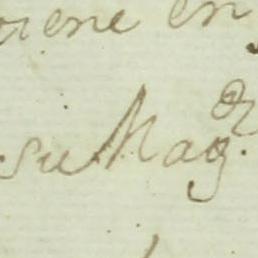 tiene en
su Mag.d